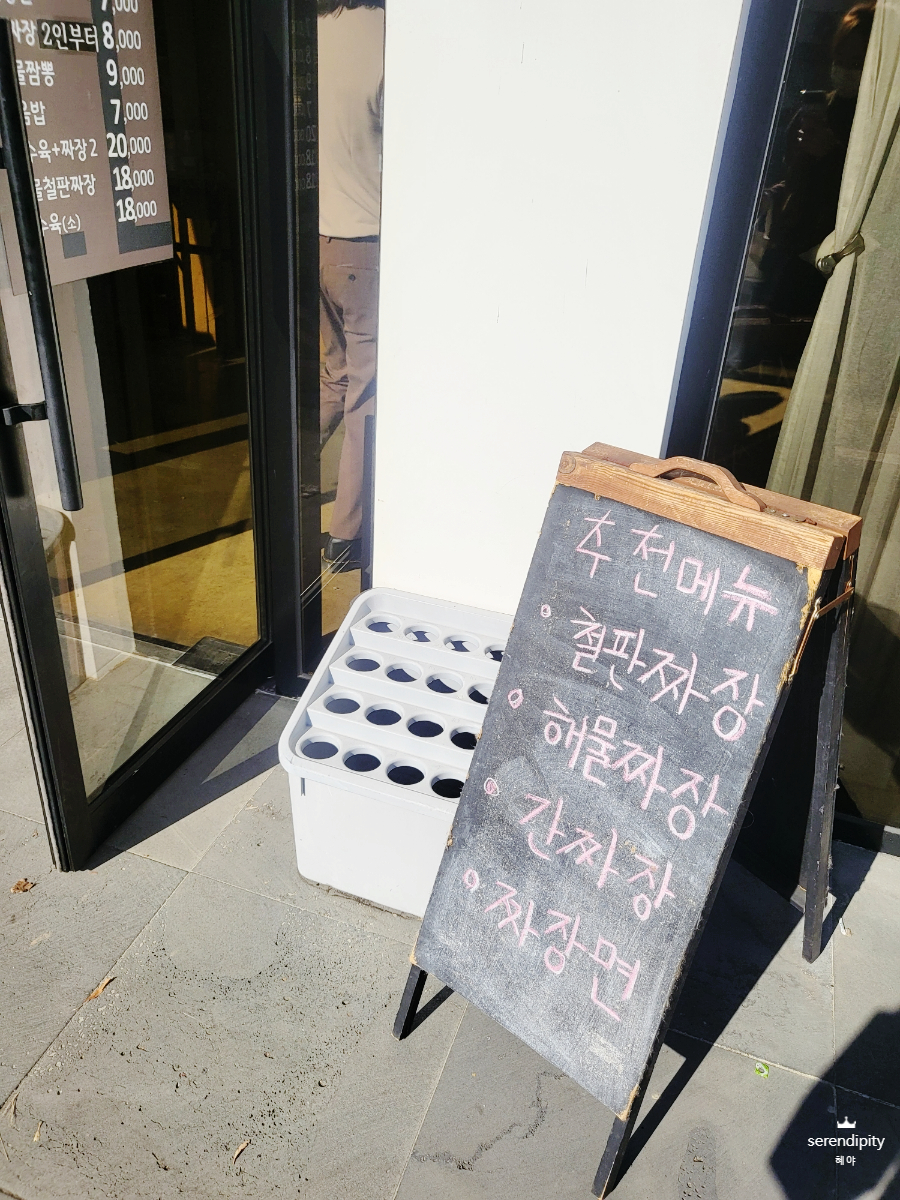 7,000
짜장 2인부터 8,000
짬뽕 9,000
밥 7,000
수육+짜장2 20,000
물철판짜장 18,000
수육(소) 18,000
추천메뉴
철판짜장
해물짜장
간짜장
짜장면
serendipity
혜야